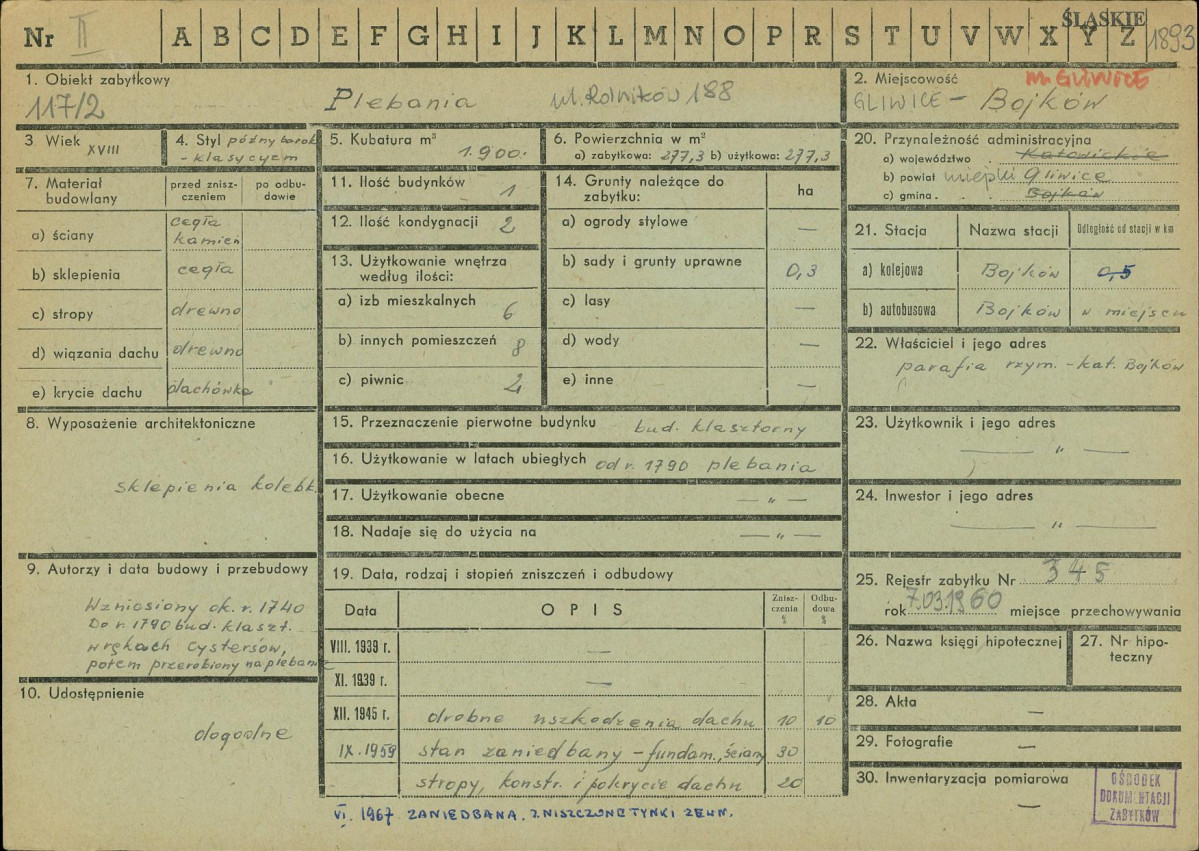 Nr II A B C D E F G H I J K L M N O P R S T U V W X Y Z
ŚLĄSKIE
1893
1. Obiekt zabytkowy
117/2 Plebania ul. Rolników 188
2. Miejscowość m. GLIWICE
GLIWICE – Bojków
3 Wiek XVIII
4. Styl późny barok
- klasycyzm
5. Kubatura m³
1.900.
6. Powierzchnia w m²
a) zabytkowa: 277,3 b) użytkowa: 277,3
7. Materiał budowlany
przed zniszczeniem
po odbudowie
a) ściany cegła
kamień
b) sklepienia cegła
c) stropy drewno
d) wiązania dachu drewno
e) krycie dachu dachówka
8. Wyposażenie architektoniczne
sklepienia kolebk.
9. Autorzy i data budowy i przebudowy
Wzniesiony ok. r. 1740
Do r. 1790 bud. klaszt.
w rękach cystersów,
potem przerobiony na plebanię
10. Udostępnienie
dogodne
11. Ilość budynków 1
12. Ilość kondygnacji 2
13. Użytkowanie wnętrza
według ilości:
a) izb mieszkalnych 6
b) innych pomieszczeń 8
c) piwnic 2
14. Grunty należące do
zabytku:
ha
a) ogrody stylowe —
b) sady i grunty uprawne 0,3
c) lasy —
d) wody —
e) inne —
15. Przeznaczenie pierwotne budynku bud. klasztorny
16. Użytkowanie w latach ubiegłych od r. 1790 plebania
17. Użytkowanie obecne — „ —
18. Nadaje się do użycia na — „ —
19. Data, rodzaj i stopień zniszczeń i odbudowy
Data OPIS Zniszczenia % Odbudowa %
VIII. 1939 r. —
XI. 1939 r. —
XII. 1945 r. drobne uszkodzenia dachu 10 10
IX. 1959 stan zaniedbany – fundam., ściany 30
stropy, konstr. i pokrycie dachu 20
VI. 1967 ZANIEDBANA. ZNISZCZONE TYNKI ZEWN.
20. Przynależność administracyjna
a) województwo Katowickie
b) powiat miejski Gliwice
c) gmina Bojków
21. Stacja Nazwa stacji Odległość od stacji w km
a) kolejowa Bojków 0,5
b) autobusowa Bojków w miejscu
22. Właściciel i jego adres
parafia rzym.-kat. Bojków
23. Użytkownik i jego adres
— „ —
24. Inwestor i jego adres
— „ —
25. Rejestr zabytku Nr 345
rok 7.03.1960 miejsce przechowywania
26. Nazwa księgi hipotecznej
27. Nr hipoteczny
28. Akta —
29. Fotografie —
30. Inwentaryzacja pomiarowa
—
OŚRODEK
DOKUMENTACJI
ZABYTKÓW